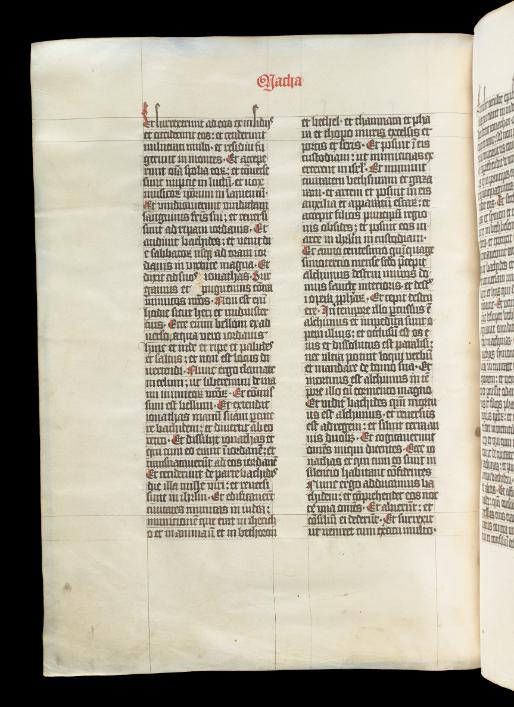 Macha
Et surrexerunt ad eos ex insidiis
et occiderunt eos: et ceciderunt
vulnerati multi · et residui fu
gerunt in montes · Et accepe
runt oīa spolia eoȝ: et cōverse
sunt nuptie in luctū · et vox
musicoȝ ipsorum in lamentū ·
Et vindicaverunt vindictam
sanguinis fr̄is sui: et reversi
sunt ad ripam iordanis · Et
audivit bachides: et venit di
e sabbatoȝ usqȝ ad oram ior
danis in virtute magna · Et
dixit ad suos ionathas · Sur
gamus et pugnemus cōtra
inimicos nr̄os · Non est enī
hodie sicut heri et nudiuster
cius · Ecce enim bellum ex ad
verso: aqua vero iordanis
hinc et inde et ripe et paludes
et saltus: et non est locus di
vertendi · Nunc ergo clamate
in celum: ut liberemini de ma
nu inimicoȝ vr̄oȝ · Et cōmis
sum est bellum · Et extendit
ionathas manū suam percu
te bachidem: et divertit ab eo
retro · Et dissiliit ionathas et
qui cum eo erant ī iordanē: et
transnataverūt ad eos iordanē
Et ceciderunt de parte bachidis
die illa mille viri: et reversi
sunt in ihrl̄m · Et edificaverūt
civitates munitas in iudea:
munitionē que erat in iherich
o et in ammaū et in bethoron
et bethel · et thamnata et pha
ra et thopo muris excelsis et
portis et seris · Et posuit ī eis
custodiam: ut inimicicias ex
ercerent in isrl̄ · Et munivit
civitatem bethsuram et gaza
ram · et arcem et posuit in eis
auxilia et apparatū escaȝ: et
accepit filios principū regio
nis obsides: et posuit eos in
arce in ihrl̄m in custodiam ·
Et anno centesimo qīnquage
simotercio mense sc̄do precepit
alchimus destrui muros do
mus sancte interioris · et destr̄
i opera pp̄haȝ · Et cepit destru
ere · In tempore illo ꝑcussus ē
alchimus et impedita sunt o
pera illius: et occlusum est os e
ius et dissolutus est paralisi:
nec ultra potuit loqui verbū
et mandare de domo sua · Et
mortuus est alchimus in tē
pore illo cū tormento magno
Et vidit bachides qm̄ mortu
us est alchimus · et reversus
est ad regem: et siluit terra an
nis duobȝ · Et cogitaverunt
omēs iniqui dicentes · Ecce io
nathas et qui cum eo sunt in
silentio habitant cōfidentes
Nunc ergo adducamus ba
chidem: et cōprehendet eos noc
te una omēs · Et abierūt: et
cōsiliū ei dederūt · Et surrexit
ut veniret cum exercitu multo ·